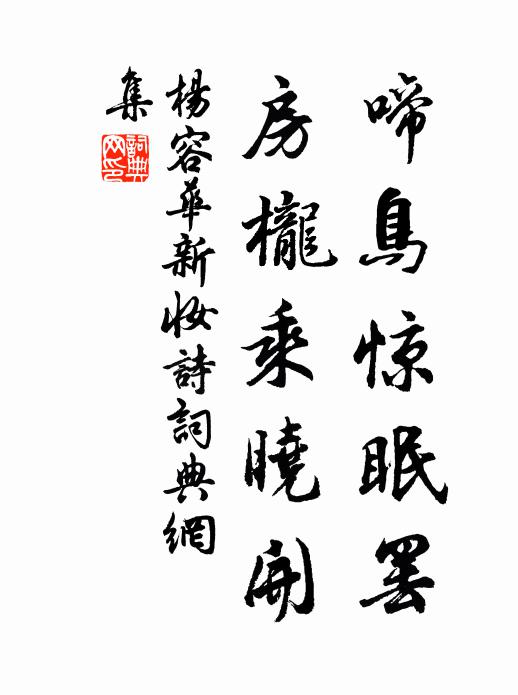 啼鳥惊眠罢
房櫳乘曉開
楊容華新妝詩詞典網
集
詞典网印